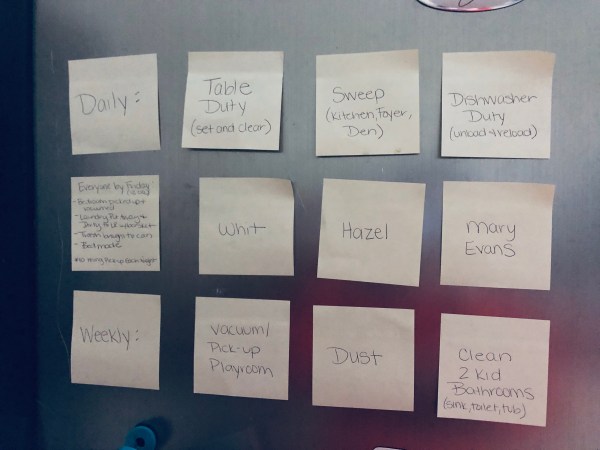 Daily:
Table
Duty
(set and clear)
Sweep
(Kitchen, Foyer,
Den)
Dishwasher
Duty
(unload & reload)
Everyone by Friday
- Bedroom picked up &
vacuumed
- Laundry
- Trash brought to can
- Bed made
Whit
Hazel
Mary
Evans
Weekly:
Vacuum/
Pick-up
Playroom
Dust
Clean
2 Kid
Bathrooms
(sink, toilet, tub)